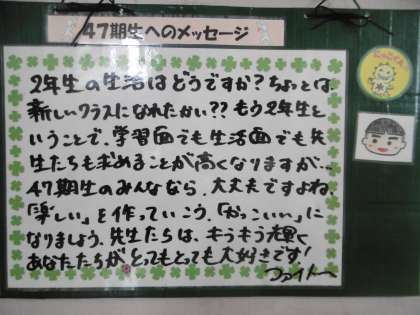 47期生へのメッセージ
2年生の生活はどうですか?ちょっとは、
新しいクラスになれたかい??もう2年生と
いうことで、学習面でも生活面でも先
生たちも求めることが高くなりますが…
47期生のみんななら、大丈夫ですよね。
「楽しい」を作っていこう、「かっこいい」に
なりましょう。先生たちは、キラキラ輝く
あなたたちが、とってもとっても大好きです!
ファイトー